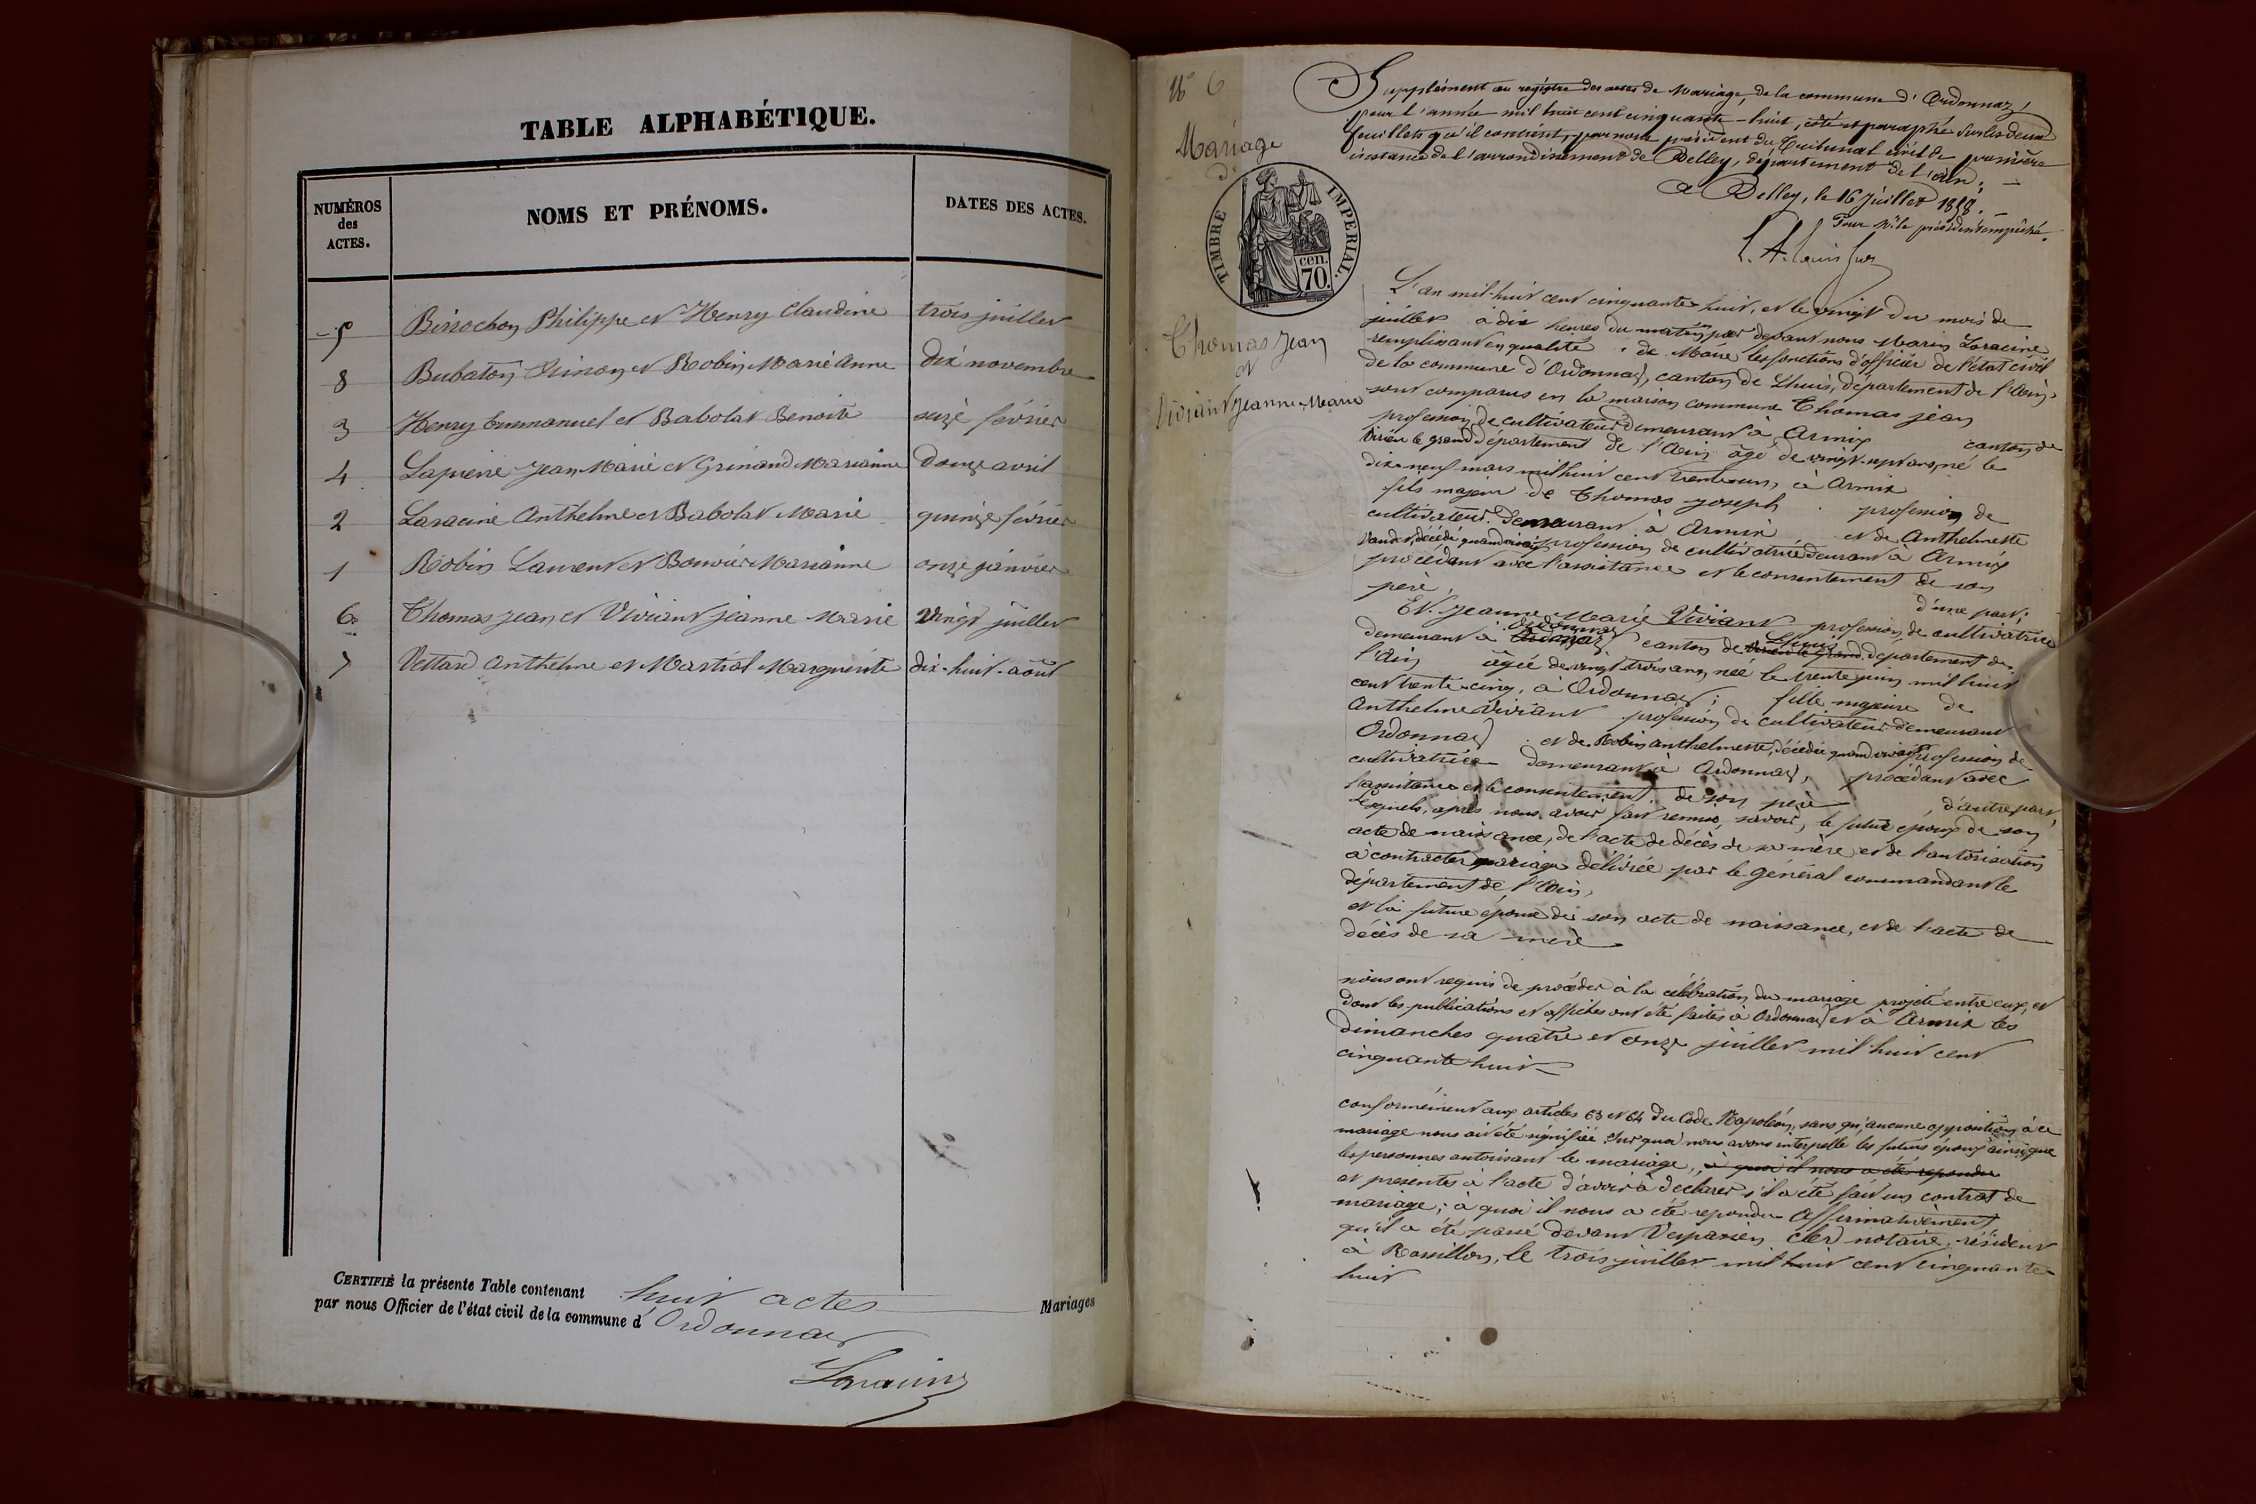 TABLE ALPHABÉTIQUE.
NUMÉROS des ACTES.
NOMS ET PRÉNOMS.
DATES DES ACTES.
5 Birrochon Philippe et Henry Claudine trois juillet
8 Bubaton et Robin Marie Anne dix novembre
3 Henry Emmanuel et Babolat Benoite seize février
4 Lapierre Jean Marie et Grinand Marianne douze avril
2 Laracine Anthelme et Babolat Marie quinze février
1 Robin Laurent et Bouvier Marianne onze janvier
6 Thomas Jean et Viviant Jeanne Marie vingt juillet
7 Vettard Anthelme et Martial Marguerite dix-huit août
CERTIFIÉ la présente Table contenant huit actes Mariages
par nous Officier de l'état civil de la commune d'Ordonnaz
Laracine
N° 6
Mariage
de
TIMBRE IMPERIAL.
cen.
70.
Thomas Jean
et
Viviant Jeanne-Marie
Supplément au régistre des actes de Mariage, de la commune d'Ordonnaz,
pour l'année mil huit cent cinquante-huit, côté et paraphé sur les deux
feuillets qu'il contient, par nous président du Tribunal civil de première
instance de l'arrondissement de Belley, département de l'Ain;
à Belley, le 16 juillet 1858.
Pour Mr le président empêché.
L'an mil-huit cent cinquante huit, et le vingt du mois de
juillet à dix heures du matin, par devant nous Marin Laracine
remplissant en qualité de Maire les fonctions d'officier de l'état civil
de la commune d'Ordonnaz, canton de Lhuis, département de l'Ain,
sont comparus en la maison commune Thomas jean
profession de cultivateur demeurant à Armix canton de
Virieu le grand département de l'Ain âgé de vingt-sept ans, né le
dix-neuf mars mil huit cent trente-un, à Armix
fils majeur de Thomas joseph profession de
cultivateur demeurant à Armix et de Anthelmette
décédée quand vivait profession de cultivatrice demeurant à Armix
procédant avec l'assistance et le consentement de son
père, d'une part;
Et Jeanne-Marie Viviant profession de cultivatrice
demeurant à Ordonnaz canton de Lhuis département de
l'Ain âgée de vingt trois ans, née le trente juin mil huit
cent trente-cinq, à Ordonnaz; fille majeure de
Anthelme Viviant profession de cultivateur demeurant
Ordonnaz et de Robin Anthelmette, décédée quand vivait profession de
cultivatrice demeurant à Ordonnaz, procédant avec
l'assistance et le consentement de son père d'autre part,
Lesquels, après nous avoir fait remise, savoir, le futur époux de son
acte de naissance, de l'acte de décès de sa mère et de l'autorisation
à contracter mariage délivrée par le général commandant le
département de l'Ain,
et la future épouse de son acte de naissance, et de l'acte de
décès de sa mère
nous ont requis de procéder à la célébration du mariage projeté entre eux, et
dont les publications et affiches ont été faites à Ordonnaz et à Armix les
dimanches quatre et onze juillet mil huit cent
cinquante huit
conformément aux articles 63 et 64 du Code Napoléon, sans qu'aucune opposition à ce
mariage nous ait été signifiée. Sur quoi nous avons interpellé les futurs époux ainsi que
les personnes autorisant le mariage, à quoi il nous a été repondu
et présentes à l'acte d'avoir à déclarer s'il a été fait un contrat de
mariage; à quoi il nous a été repondu affirmativement
qu'il a été passé devant Vespasien Clerd notaire, résident
à Rossillon, le trois juillet mil huit cent cinquante-
huit